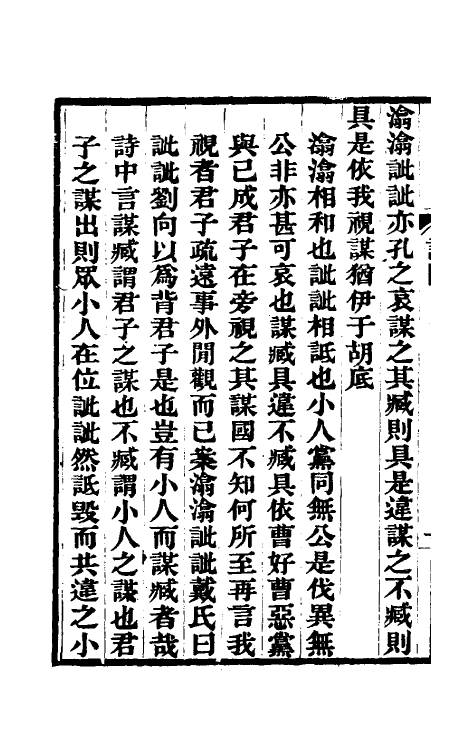 潝潝訿訿亦孔之哀謀之其臧則具是違謀之不臧則
具是依我視謀猶伊于胡底
潝潝相和也訿訿相詆也小人黨同無公是伐異無
公非亦甚可哀也謀臧具違不臧具依曹好曹惡黨
與已成君子在旁視之其謀國不知何所至再言我
視者君子疏遠事外閒觀而已案潝潝訿訿戴氏曰
訿訿劉向以為背君子是也豈有小人而謀臧者哉
詩中言謀臧謂君子之謀也不臧謂小人之謀也君
子之謀出則眾小人在位訿訿然詆毀而共違之小